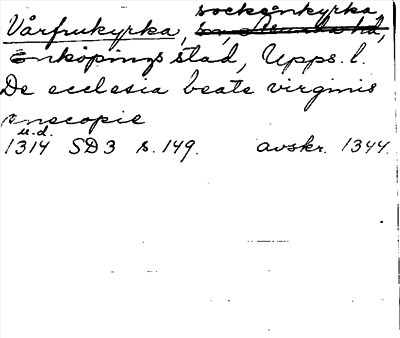 sockenkyrka
Vårfrukyrka,
Enköpings stad, Upps. l.
De ecclesia beate virginis
enecopie
u.d.
1314 SD3 s. 149. avskr. 1344.